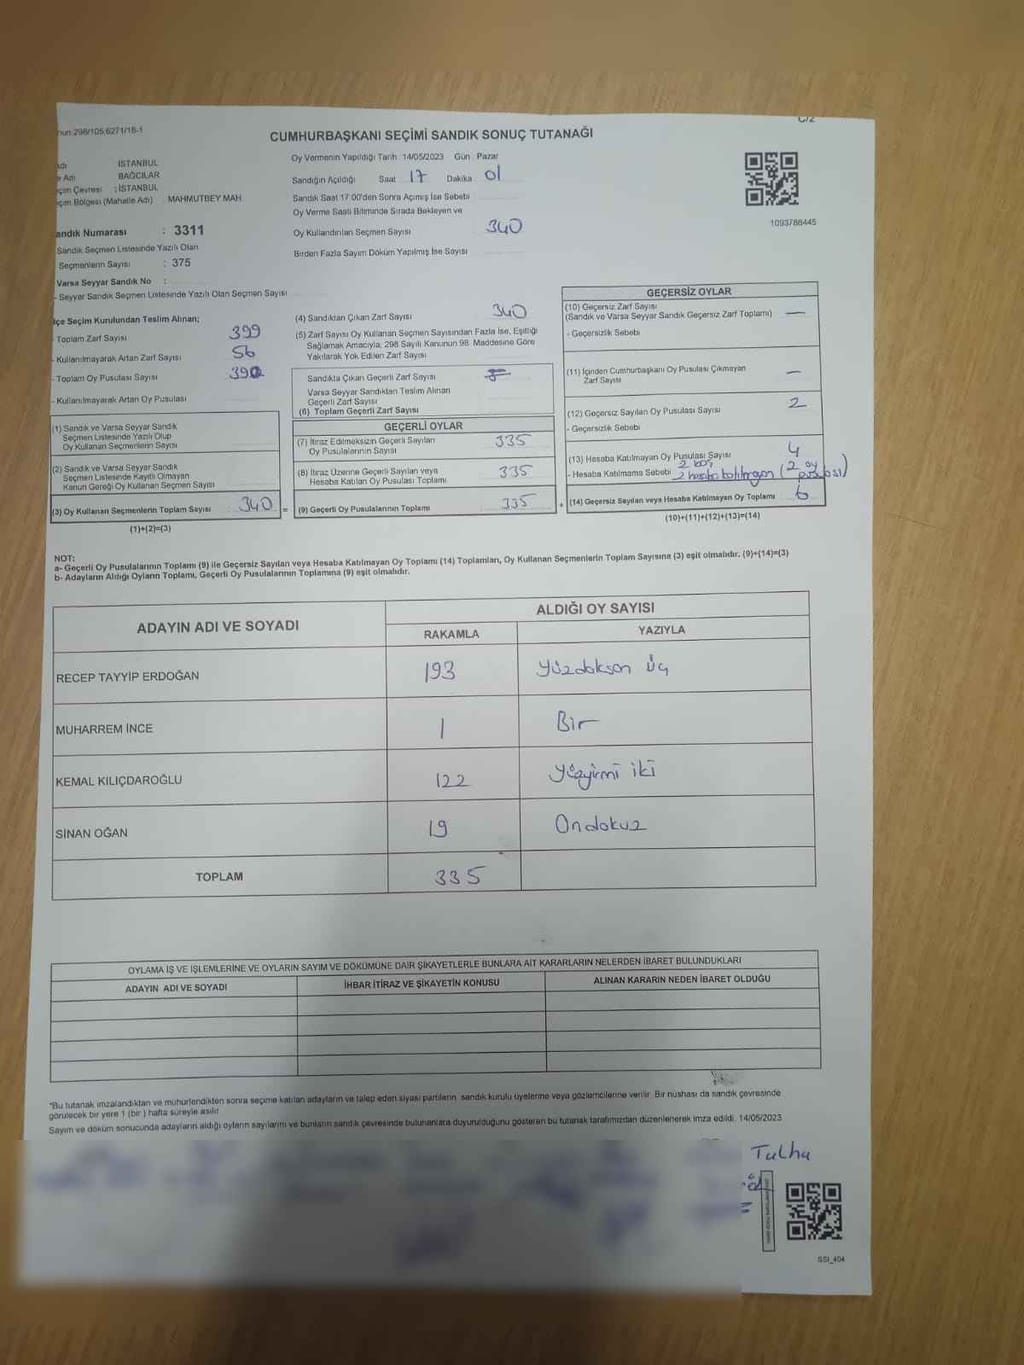 nun 298/105,6271/18-1
C/2
CUMHURBAŞKANI SEÇİMİ SANDIK SONUÇ TUTANAĞI
Adı İSTANBUL
e Adı BAĞCILAR
eçim Çevresi : İSTANBUL
eçim Bölgesi (Mahalle Adı) MAHMUTBEY MAH
andık Numarası : 3311
Sandık Seçmen Listesinde Yazılı Olan
Seçmenlerin Sayısı : 375
Varsa Seyyar Sandık No :
- Seyyar Sandık Seçmen Listesinde Yazılı Olan Seçmen Sayısı
Oy Vermenin Yapıldığı Tarih 14/05/2023 Gün Pazar
Sandığın Açıldığı Saat 17 Dakika 01
Sandık Saat 17:00'den Sonra Açımış İse Sebebi
Oy Verme Saati Bitiminde Sırada Bekleyen ve
Oy Kullandırılan Seçmen Sayısı 340
Birden Fazla Sayım Döküm Yapılmış İse Sayısı
1093788445
lçe Seçim Kurulundan Teslim Alınan;
- Toplam Zarf Sayısı 399
- Kullanılmayarak Artan Zarf Sayısı 56
- Toplam Oy Pusulası Sayısı
- Kullanılmayarak Artan Oy Pusulası
(1) Sandık ve Varsa Seyyar Sandık
Seçmen Listesinde Yazılı Olup
Oy Kullanan Seçmenlerin Sayısı
(2) Sandık ve Varsa Seyyar Sandık
Seçmen Listesinde Kayıtlı Olmayan
Kanun Gereği Oy Kullanan Seçmen Sayısı
(3) Oy Kullanan Seçmenlerin Toplam Sayısı 340 =
(1)+(2)=(3)
(4) Sandıktan Çıkan Zarf Sayısı 340
(5) Zarf Sayısı Oy Kullanan Seçmen Sayısından Fazla İse, Eşitliği
Sağlamak Amacıyla, 298 Sayılı Kanunun 98. Maddesine Göre
Yakılarak Yok Edilen Zarf Sayısı
Sandıkta Çıkan Geçerli Zarf Sayısı
Varsa Seyyar Sandıktan Teslim Alınan
Geçerli Zarf Sayısı
(6) Toplam Geçerli Zarf Sayısı
GEÇERLİ OYLAR
(7) İtiraz Edilmeksizin Geçerli Sayılan
Oy Pusulalarının Sayısı 335
(8) İtiraz Üzerine Geçerli Sayılan veya
Hesaba Katılan Oy Pusulası Toplamı 335
(9) Geçerli Oy Pusulalarının Toplamı 335 +
GEÇERSİZ OYLAR
(10) Geçersiz Zarf Sayısı
(Sandık ve Varsa Seyyar Sandık Geçersiz Zarf Toplamı) —
- Geçersizlik Sebebi
(11) İçinden Cumhurbaşkanı Oy Pusulası Çıkmayan
Zarf Sayısı —
(12) Geçersiz Sayılan Oy Pusulası Sayısı 2
- Geçersizlik Sebebi
(13) Hesaba Katılmayan Oy Pusulası Sayısı 4
2 boş
- Hesaba Katılmama Sebebi 2 hesaba katılmayan (2 oy pusulası)
(14) Geçersiz Sayılan veya Hesaba Katılmayan Oy Toplamı 6
(10)+(11)+(12)+(13)=(14)
NOT:
a- Geçerli Oy Pusulalarının Toplamı (9) ile Geçersiz Sayılan veya Hesaba Katılmayan Oy Toplamı (14) Toplamları, Oy Kullanan Seçmenlerin Toplam Sayısına (3) eşit olmalıdır. (9)+(14)=(3)
b- Adayların Aldığı Oyların Toplamı, Geçerli Oy Pusulalarının Toplamına (9) eşit olmalıdır.
ADAYIN ADI VE SOYADI
ALDIĞI OY SAYISI
RAKAMLA YAZIYLA
RECEP TAYYİP ERDOĞAN 193 Yüzdoksan üç
MUHARREM İNCE 1 Bir
KEMAL KILIÇDAROĞLU 122 Yüzyirmi iki
SİNAN OĞAN 19 Ondokuz
TOPLAM 335
OYLAMA İŞ VE İŞLEMLERİNE VE OYLARIN SAYIM VE DÖKÜMÜNE DAİR ŞİKAYETLERLE BUNLARA AİT KARARLARIN NELERDEN İBARET BULUNDUKLARI
ADAYIN ADI VE SOYADI İHBAR İTİRAZ VE ŞİKAYETİN KONUSU ALINAN KARARIN NEDEN İBARET OLDUĞU
*Bu tutanak imzalandıktan ve mühürlendikten sonra seçime katılan adayların ve talep eden siyasi partilerin sandık kurulu üyelerine veya gözlemcilerine verilir. Bir nüshası da sandık çevresinde
görülecek bir yere 1 (bir ) hafta süreyle asılır.
Sayım ve döküm sonucunda adayların aldığı oyların sayılarını ve bunların sandık çevresinde bulunanlara duyurulduğunu gösteren bu tutanak tarafımızdan düzenlenerek imza edildi. 14/05/2023
Talha
SSI_404